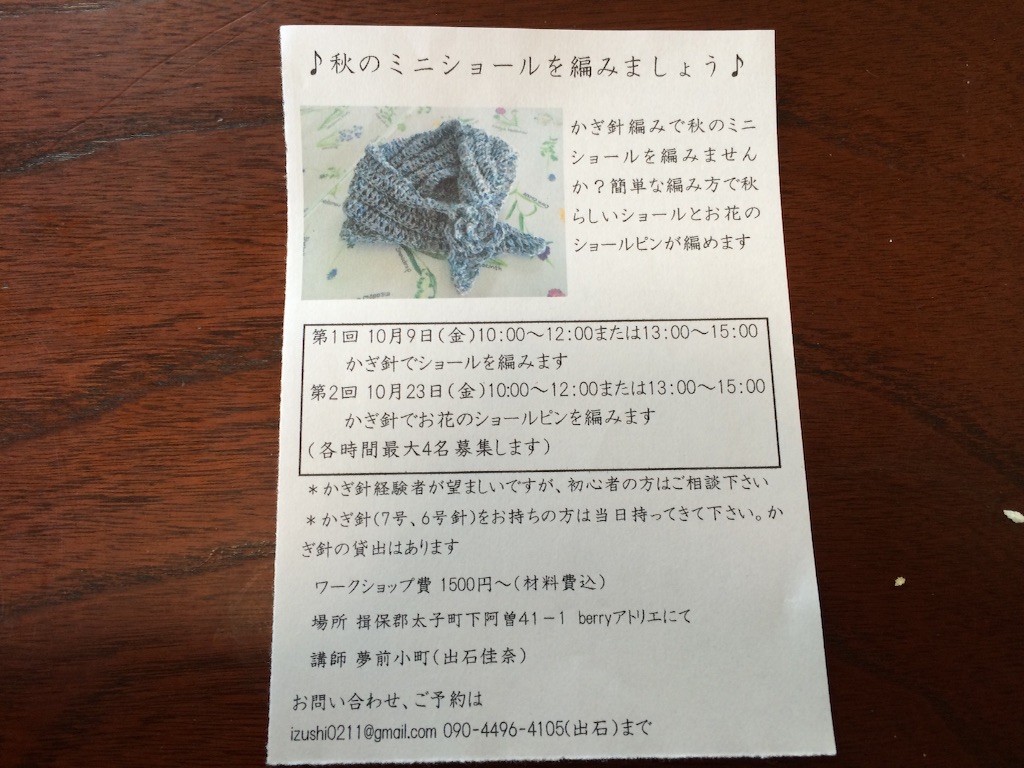 ♪秋のミニショールを編みましょう♪
かぎ針編みで秋のミニ
ショールを編みません
か？簡単な編み方で秋
らしいショールとお花の
ショールピンが編めます
第1回 10月9日(金)10:00～12:00または13:00～15:00
かぎ針でショールを編みます
第2回 10月23日(金)10:00～12:00または13:00～15:00
かぎ針でお花のショールピンを編みます
(各時間最大4名募集します)
＊かぎ針経験者が望ましいですが、初心者の方はご相談下さい
＊かぎ針(7号、6号針)をお持ちの方は当日持ってきて下さい。か
ぎ針の貸出はあります
ワークショップ費 1500円～(材料費込)
場所 揖保郡太子町下阿曽41－1 berryアトリエにて
講師 夢前小町(出石佳奈)
お問い合わせ、ご予約は
izushi0211@gmail.com 090-4496-4105(出石)まで